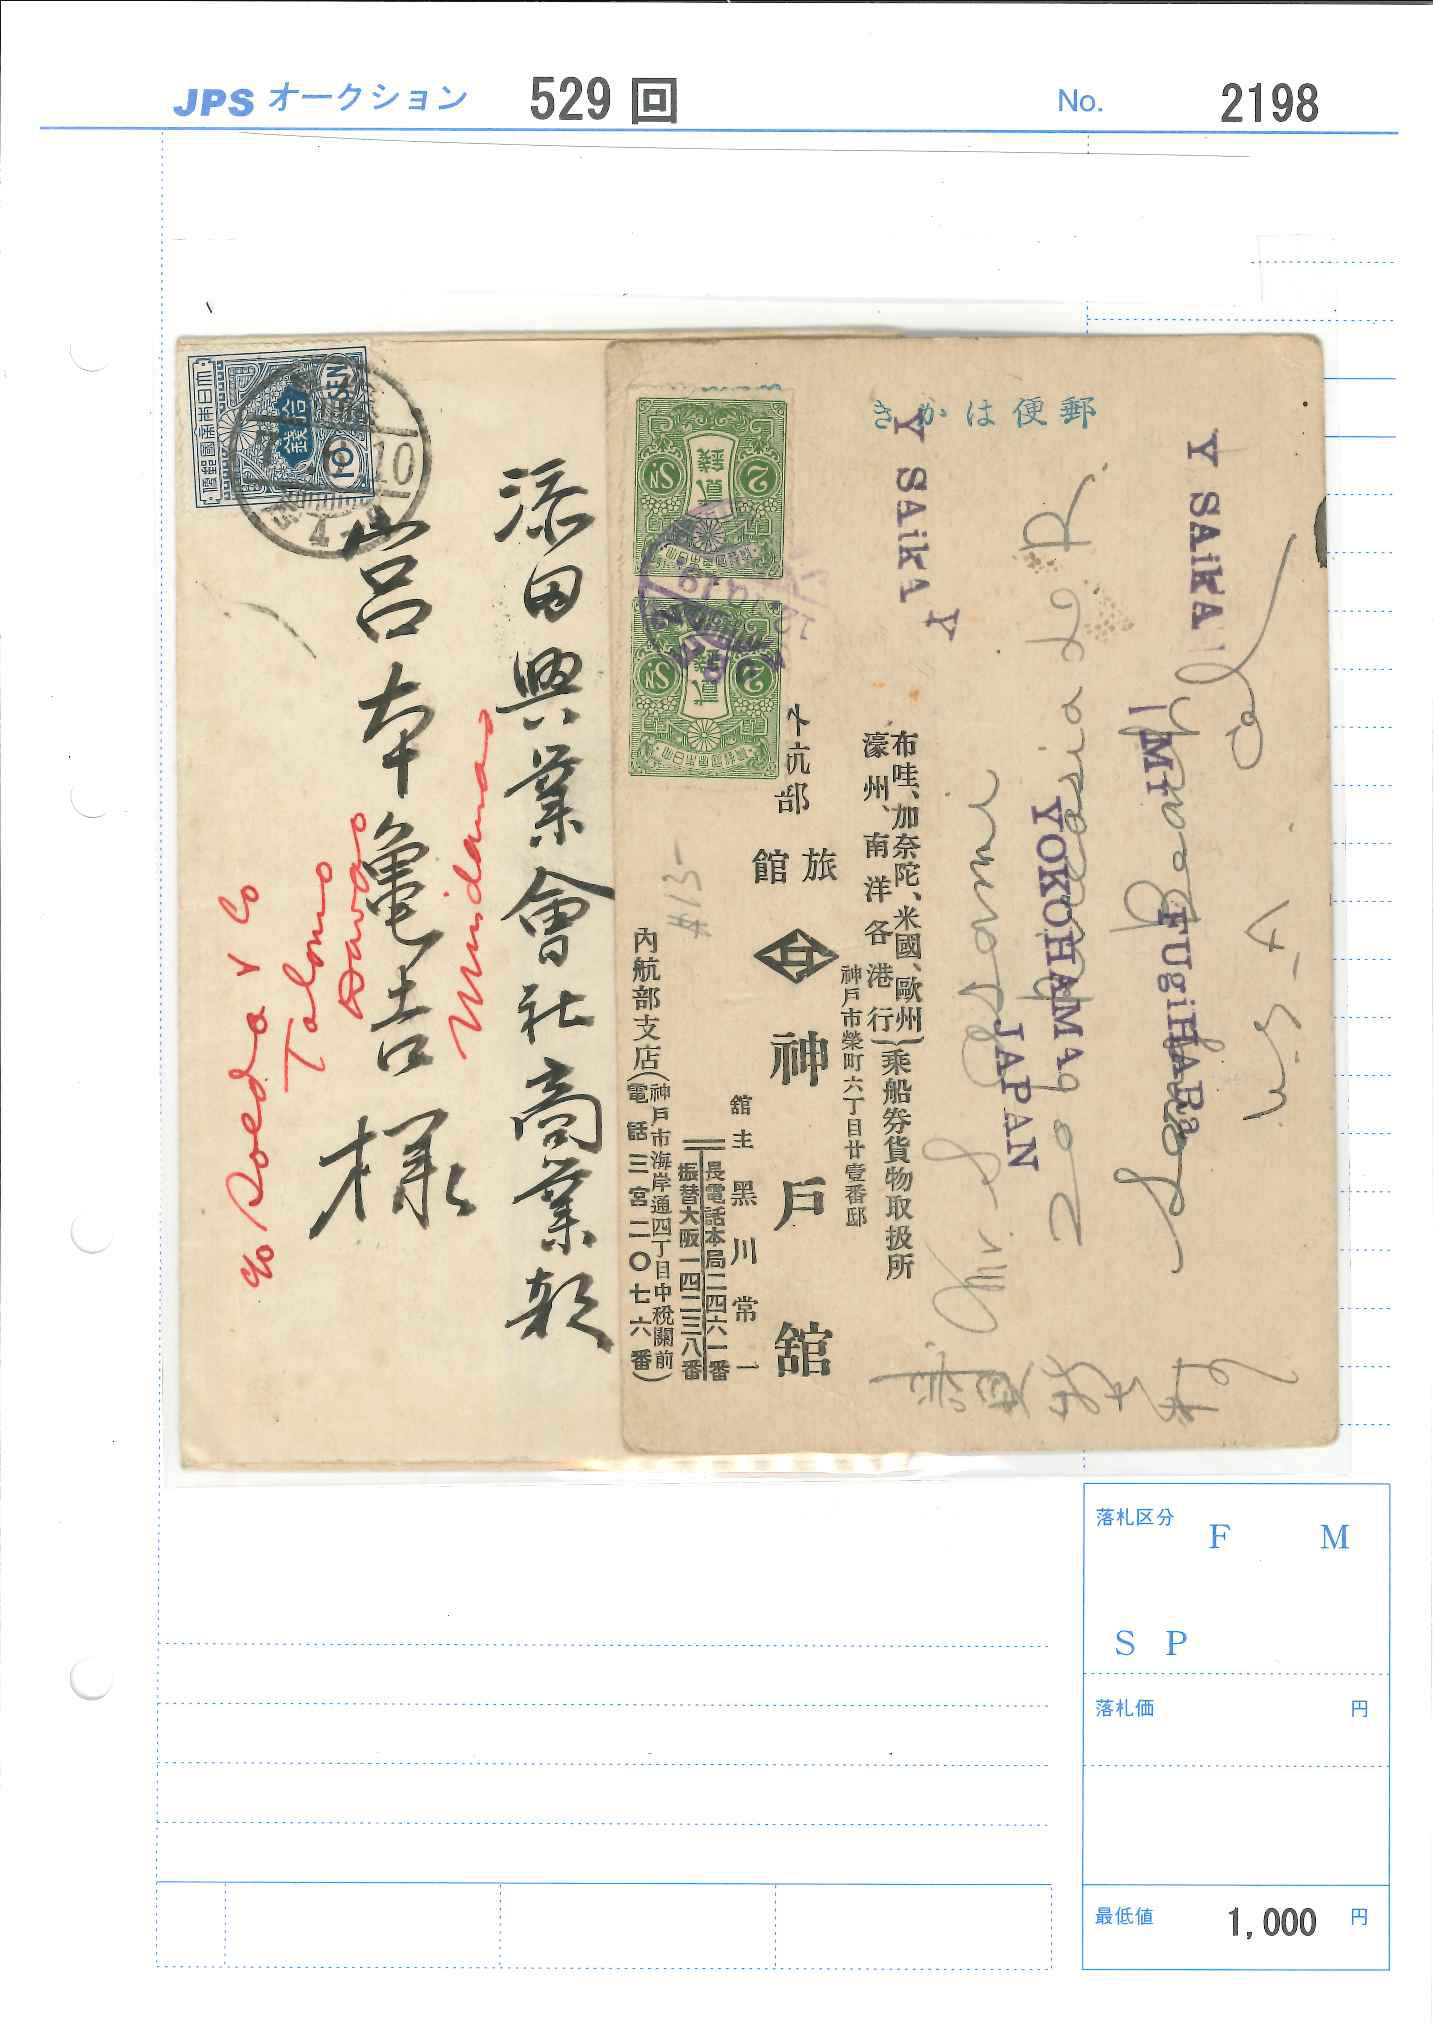 JPS オークション 529 回 No. 2198
大日本帝國郵便
拾錢
10 SEN
添田興業會社商業部
宮本亀吉様
Soeda y Co
Talomo
Davao
Mindanao
郵便はかき
大日本帝國郵便
貳錢
2 SN
大日本帝國郵便
貳錢
2 SN
布哇、加奈陀、米國、歐州
濠州、南洋各港行
乘船券貨物取扱所
神戸市榮町六丁目廿壹番邸
外航部
旅館
神戸舘
舘主 黑川常一
長電話本局二四六一番
振替大阪一四二三八番
內航部支店
(神戸市海岸通四丁目中稅關前
電話三宮二〇七六番)
#13-
Y SAikA
Y SAikA Y
Mr FUgiHARa
YOKOHAMA
JAPAN
Mr S
206
Beach
Cal
U.S.A
落札区分 F M
S P
落札価 円
最低値 1,000 円